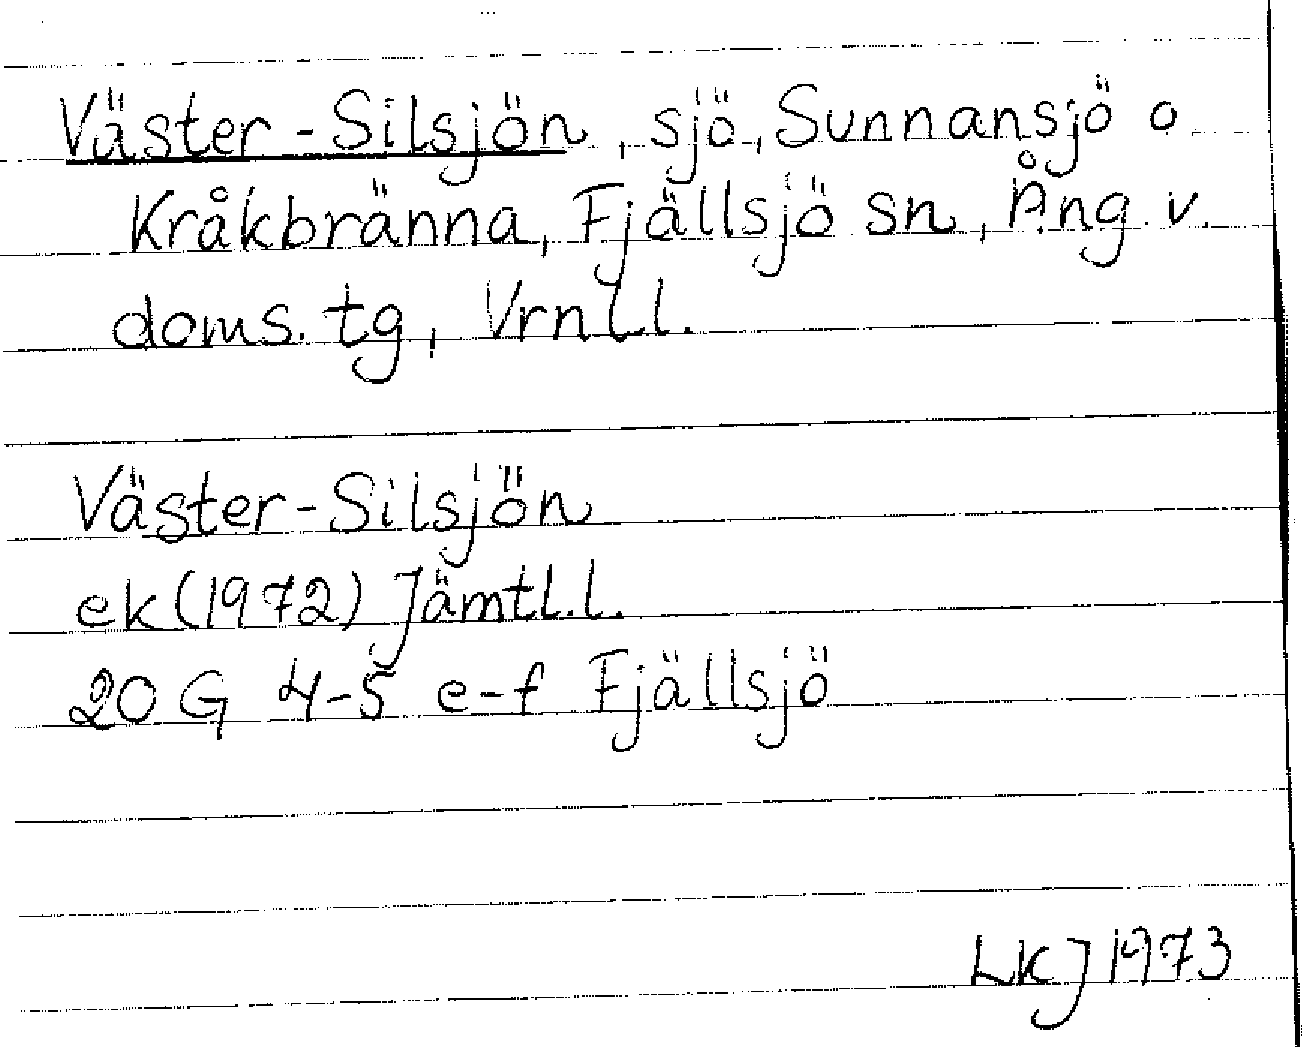 Väster-Silsjön, sjö, Sunnansjö o
Kråkbränna, Fjällsjö sn, Ång. v.
doms. tg, Vrnl l.
Väster-Silsjön
ek (1972) Jämtl. l.
20 G 4-5 e-f Fjällsjö
LKJ 1973